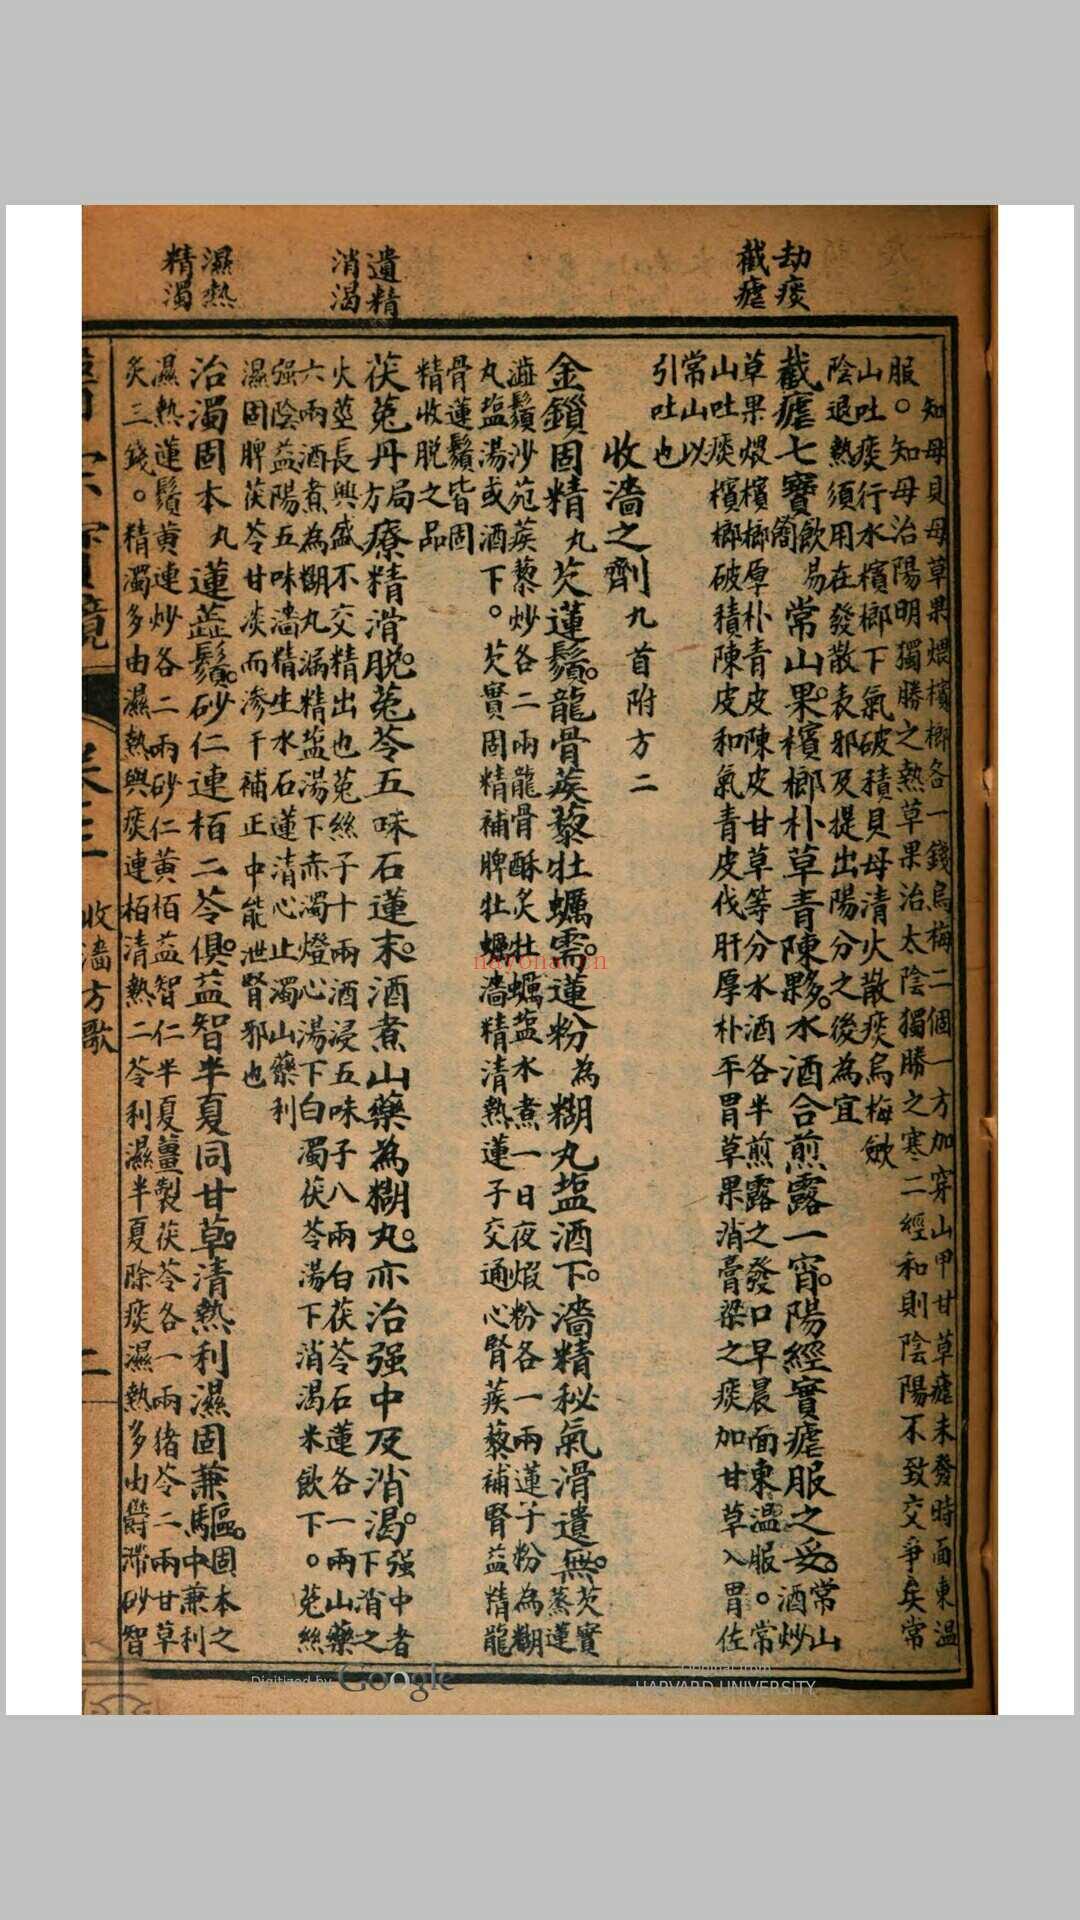 劫痰
截瘧
遺精
消渴
濕熱
精濁
知母貝母草果煨檳榔各一錢烏梅二個一方加穿山甲甘草瘧未發時面東温
服。知母治陽明獨勝之熱草果治太陰獨勝之寒二經和則陰陽不致交爭矣常
山吐痰行水檳榔下氣破積貝母清火散痰烏梅斂
陰退熱須用在發散表邪及提出陽分之後為宜
截瘧七寶飲易簡常山果檳榔朴草青陳夥水酒合煎露一宵陽經實瘧服之妥常山酒炒
草果煨檳榔厚朴青皮陳皮甘草等分水酒各半煎露之發口早晨面東温服。常
山吐痰檳榔破積陳皮和氣青皮伐肝厚朴平胃草果消膏梁之痰加甘草入胃佐
常山以
引吐也
收濇之劑九首附方二
金鎖固精丸芡蓮鬚龍骨蒺藜牡蠣需蓮粉為糊丸盐酒下濇精秘氣滑遺無芡實蒸蓮
鬚沙苑蒺藜炒各二兩龍骨酥炙牡蠣盐水煮一日夜煅粉各一兩蓮子粉為糊
丸盐湯或酒下。芡實固精補脾牡蠣濇精清熱蓮子交通心腎蒺藜補腎益精龍
骨蓮鬚皆固
精收脱之品
茯菟丹局方療精滑脱菟苓五味石蓮末酒煮山藥為糊丸亦治强中及消渴强中者下消之
火莖長興盛不交精出也菟絲子十兩酒浸五味子八兩白茯苓石蓮各一兩山藥
六兩酒煮為糊丸漏精盐湯下赤濁燈心湯下白濁茯苓湯下消渴米飲下。菟絲
强陰益陽五味濇精生水石蓮清心止濁山藥利
濕固脾茯苓甘淡而渗于補正中能泄腎邪也
治濁固本丸蓮蕋鬚砂仁連栢二苓俱益智半夏同甘草清熱利濕固兼驅固本之中兼利
濕熱蓮鬚黄連炒各二兩砂仁黄栢益智仁半夏薑製茯苓各一兩猪苓二兩甘草
炙三錢。精濁多由濕熱與痰連栢清熱二苓利濕半夏除痰濕熱多由欝滯砂智
收濇方歌
二
nayona.cn
Digitized by Google
Original from
HARVARD UNIVERSITY